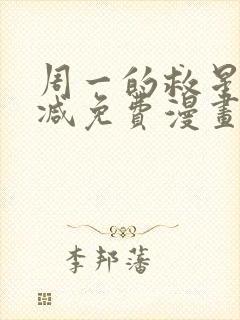 周一的救星
减免費漫畫
李邦藩